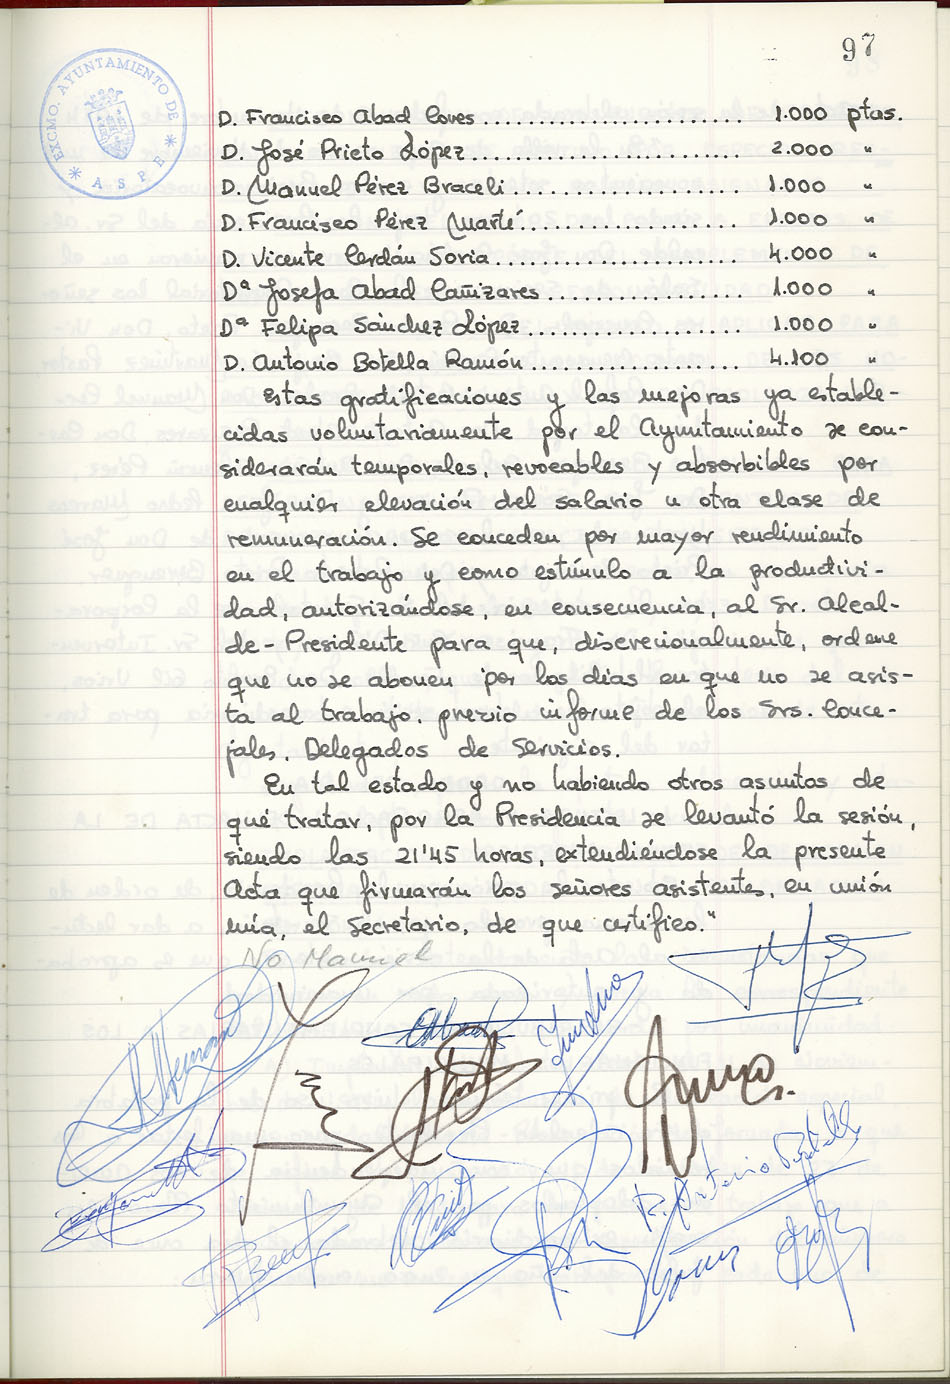 97
EXCMO. AYUNTAMIENTO DE
* ASPE *
D. Francisco Abad Coves........................... 1.000 ptas.
D. José Prieto López........................... 2.000 "
D. Manuel Pérez Braceli........................ 1.000 "
D. Francisco Pérez Martí....................... 1.000 "
D. Vicente Cerdán Soria........................ 4.000 "
Dª Josefa Abad Cañizares.................... 1.000 "
Dª Felipa Sánchez López...................... 1.000 "
D. Antonio Botella Ramón.................... 4.100 "
Estas gratificaciones y las mejoras ya estable-
cidas voluntariamente por el Ayuntamiento se con-
siderarán temporales, revocables y absorbibles por
cualquier elevación del salario u otra clase de
remuneración. Se conceden por mayor rendimiento
en el trabajo y como estímulo a la productivi-
dad, autorizándose, en consecuencia, al Sr. Alcal-
de-Presidente para que, discrecionalmente, ordene
que no se abonen por los días en que no se asis-
ta al trabajo, previo informe de los Srs. Conce-
jales, Delegados de Servicios.
En tal estado y no habiendo otros asuntos de
qué tratar, por la Presidencia se levantó la sesión,
siendo las 21'45 horas, extendiéndose la presente
Acta que firmarán los señores asistentes, en unión
mía, el Secretario, de que certifico."
No Manuel